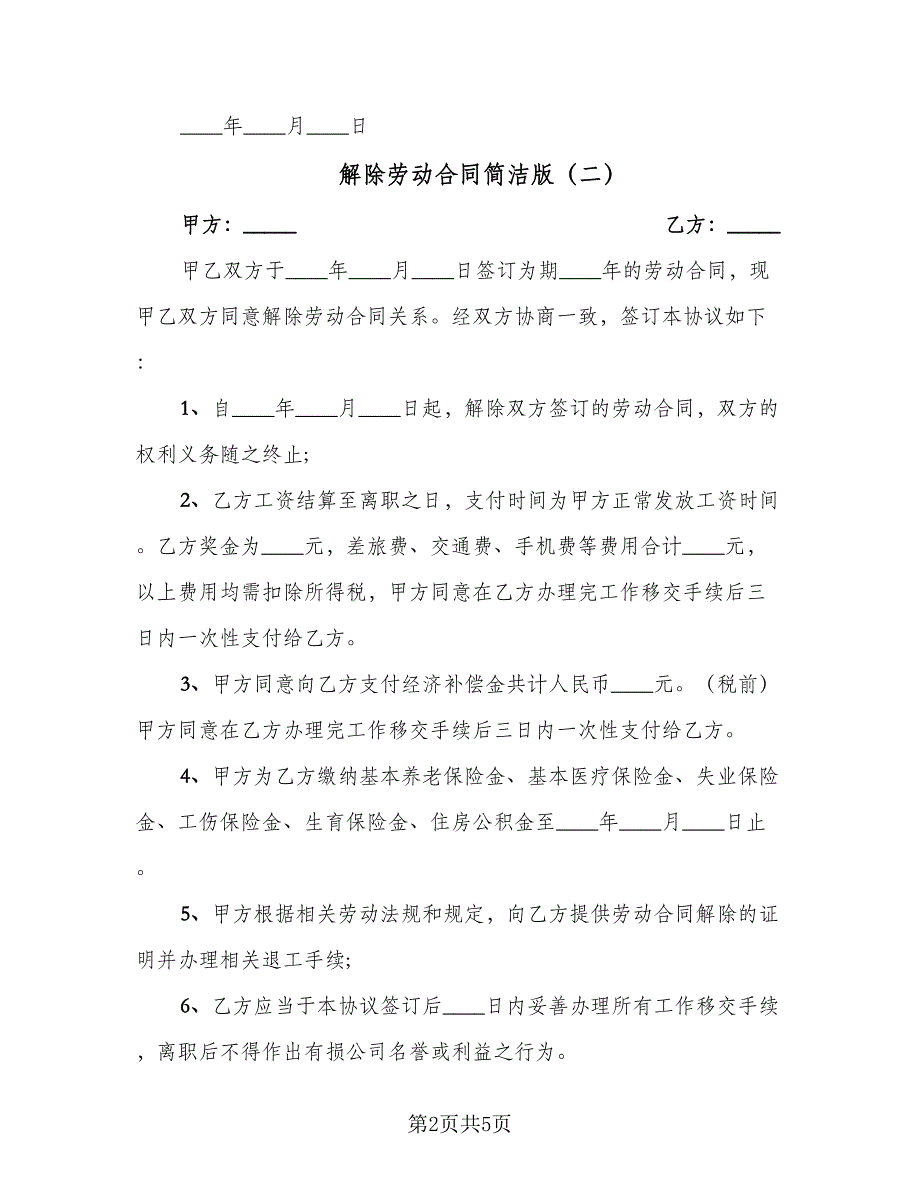 ____年____月____日
解除劳动合同简洁版（二）
甲方：_____ 乙方：_____
甲乙双方于____年____月____日签订为期____年的劳动合同，现
甲乙双方同意解除劳动合同关系。经双方协商一致，签订本协议如下
：
1、自____年____月____日起，解除双方签订的劳动合同，双方的
权利义务随之终止;
2、乙方工资结算至离职之日，支付时间为甲方正常发放工资时间
。乙方奖金为____元，差旅费、交通费、手机费等费用合计____元，
以上费用均需扣除所得税，甲方同意在乙方办理完工作移交手续后三
日内一次性支付给乙方。
3、甲方同意向乙方支付经济补偿金共计人民币____元。（税前）
甲方同意在乙方办理完工作移交手续后三日内一次性支付给乙方。
4、甲方为乙方缴纳基本养老保险金、基本医疗保险金、失业保险
金、工伤保险金、生育保险金、住房公积金至____年____月____日止
。
5、甲方根据相关劳动法规和规定，向乙方提供劳动合同解除的证
明并办理相关退工手续;
6、乙方应当于本协议签订后____日内妥善办理所有工作移交手续
，离职后不得作出有损公司名誉或利益之行为。
第2页共5页